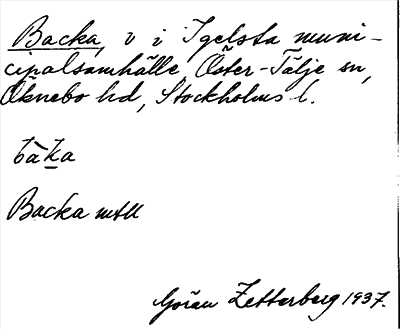 Backa, v i Igelsta muni-
cipalsamhälle, Öster-Tälje sn,
Öknebo hd, Stockholms l.
bàka
Backa mtU
Göran Zetterberg 1937.